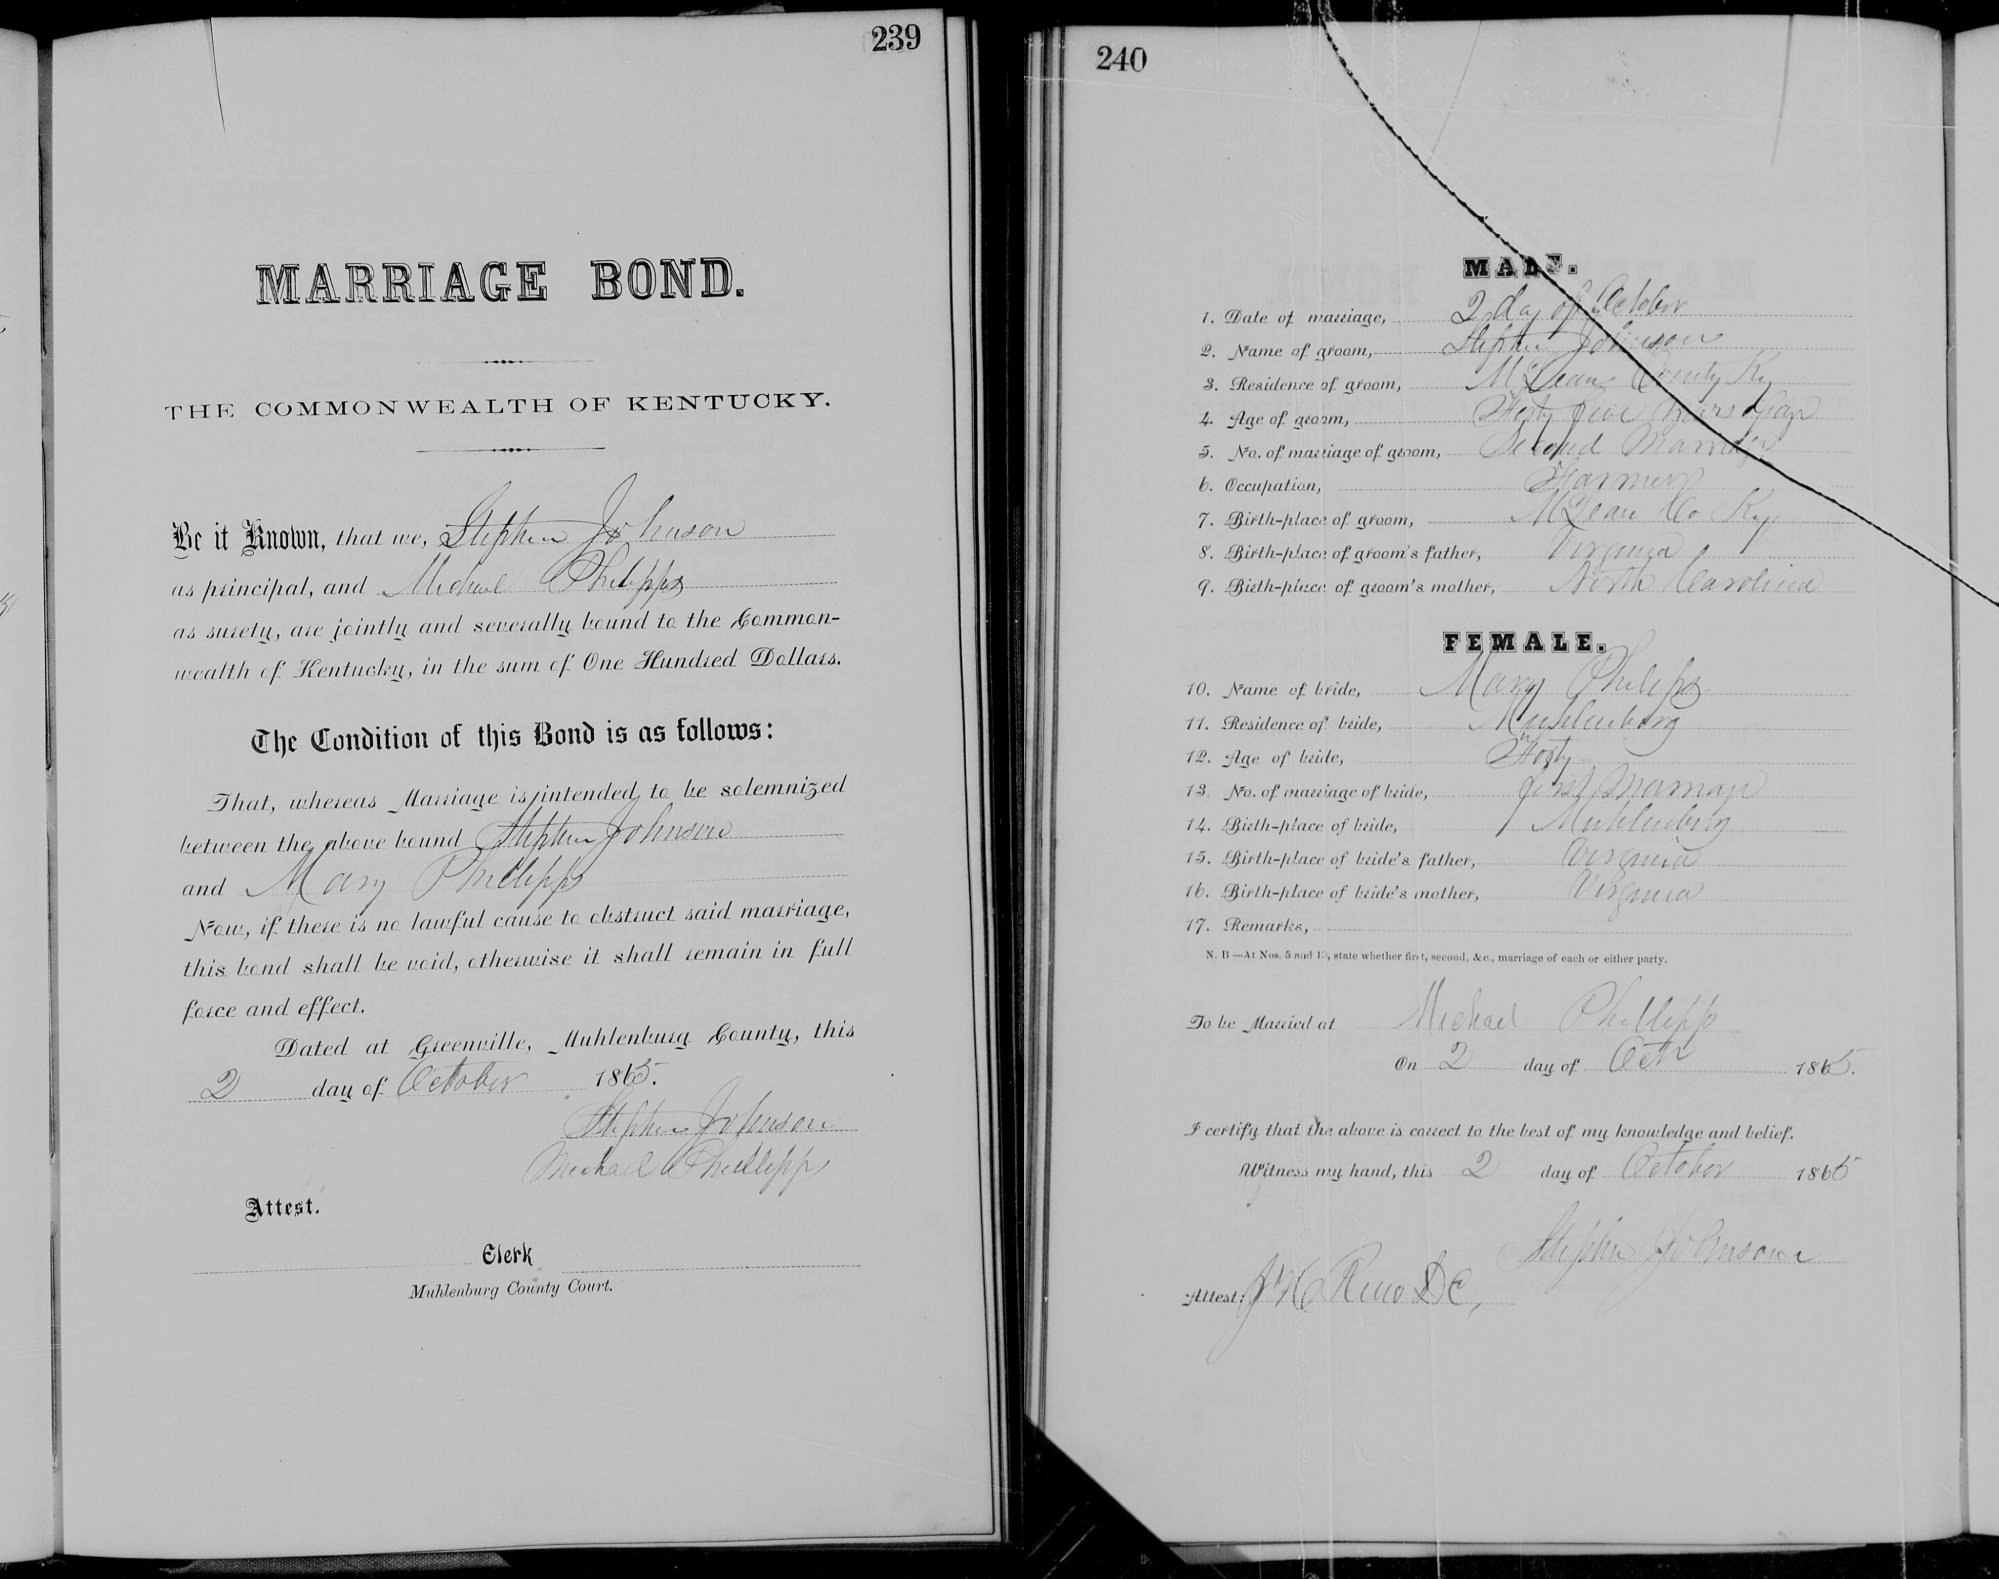 239
MARRIAGE BOND.
THE COMMONWEALTH OF KENTUCKY.
Be it Known, that we, Stephen Johnson
as principal, and Michael Philipps
as surety, are jointly and severally bound to the Common-
wealth of Kentucky, in the sum of One Hundred Dollars.
The Condition of this Bond is as follows:
That, whereas Marriage is intended to be solemnized
between the above bound Stephen Johnson
and Mary Phillipps
Now, if there is no lawful cause to obstruct said marriage,
this bond shall be void, otherwise it shall remain in full
force and effect.
Dated at Greenville, Muhlenburg County, this
2 day of October 1865.
Stephen Johnson
Michael Phillipps
Attest.
Clerk
Muhlenburg County Court.
240
MALE.
1. Date of marriage, 2 day of October
2. Name of groom, Stephen Johnson
3. Residence of groom, McLean County Ky
4. Age of groom, Forty five years
5. No. of marriage of groom, Second Marriage
6. Occupation, Farmer
7. Birth-place of groom, McLean Co Ky
8. Birth-place of groom's father, Virginia
9. Birth-place of groom's mother, North Carolina
FEMALE.
10. Name of bride, Mary Philips
11. Residence of bride, Muhlenburg
12. Age of bride, Forty
13. No. of marriage of bride, first Marriage
14. Birth-place of bride, Muhlenburg
15. Birth-place of bride's father, Virginia
16. Birth-place of bride's mother, Virginia
17. Remarks,
N. B—At Nos. 5 and 13, state whether first, second, &c., marriage of each or either party.
To be Married at Michael Phillipp
On 2 day of Octr 1865.
I certify that the above is correct to the best of my knowledge and belief.
Witness my hand, this 2 day of October 1865
Stephen Johnson
Attest: Reno D C,